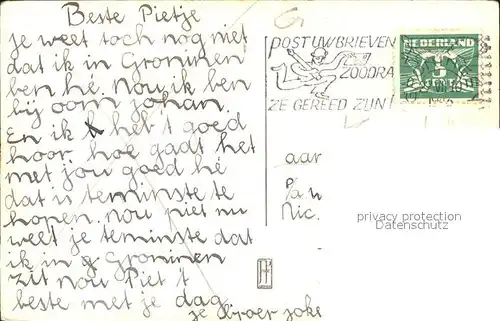 Beste Pietje
je weet toch nog niet
dat ik in Groninen
ben hé. Nou ik ben
bij oom johan.
En ik heb t goed
hoor hoe gadt het
met jou goed hé
dat is teminste te
hopen. nou piet nu
weet je teminste dat
ik in g Groninen
zit nou Piet 't
beste met je dag
je broer joke
POST UW BRIEVEN
ZOODRA
ZE GEREED ZIJN!
NEDERLAND
5
aan
P/a
Nic.
privacy protection
Datenschutz